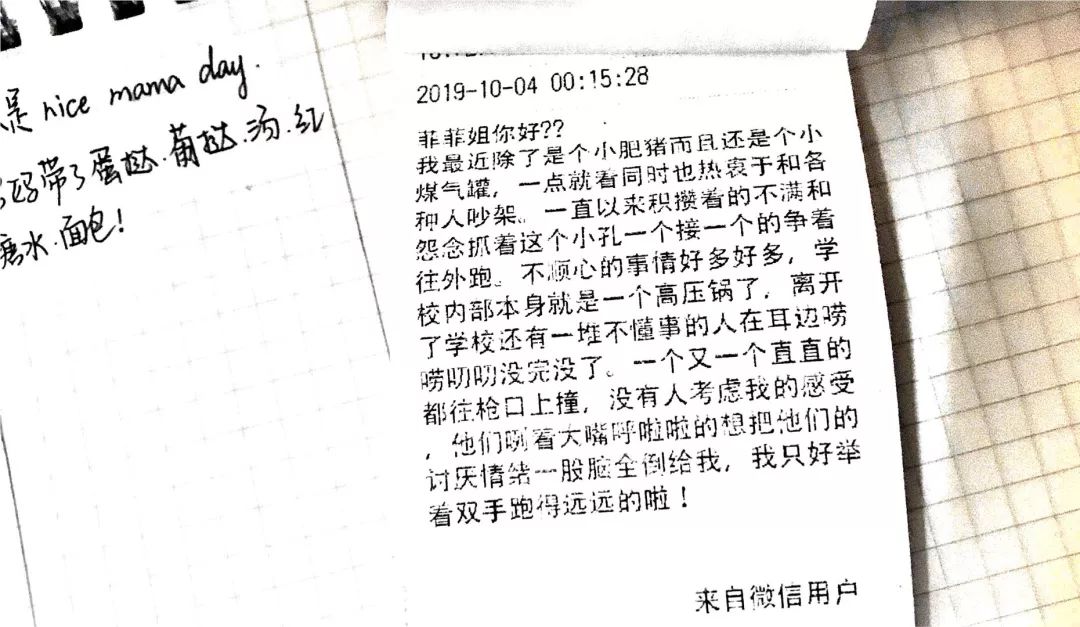 是 nice mama day.
妈妈带了蛋挞.葡挞.汤.红
糖水.面包!
2019-10-04 00:15:28
菲菲姐你好??
我最近除了是个小肥猪而且还是个小
煤气罐，一点就着同时也热衷于和各
种人吵架。一直以来积攒着的不满和
怨念抓着这个小孔一个接一个的争着
往外跑。不顺心的事情好多好多，学
校内部本身就是一个高压锅了，离开
了学校还有一堆不懂事的人在耳边唠
唠叨叨没完没了。一个又一个直直的
都往枪口上撞，没有人考虑我的感受
，他们咧着大嘴呼啦啦的想把他们的
讨厌情绪一股脑全倒给我，我只好举
着双手跑得远远的啦！
来自微信用户